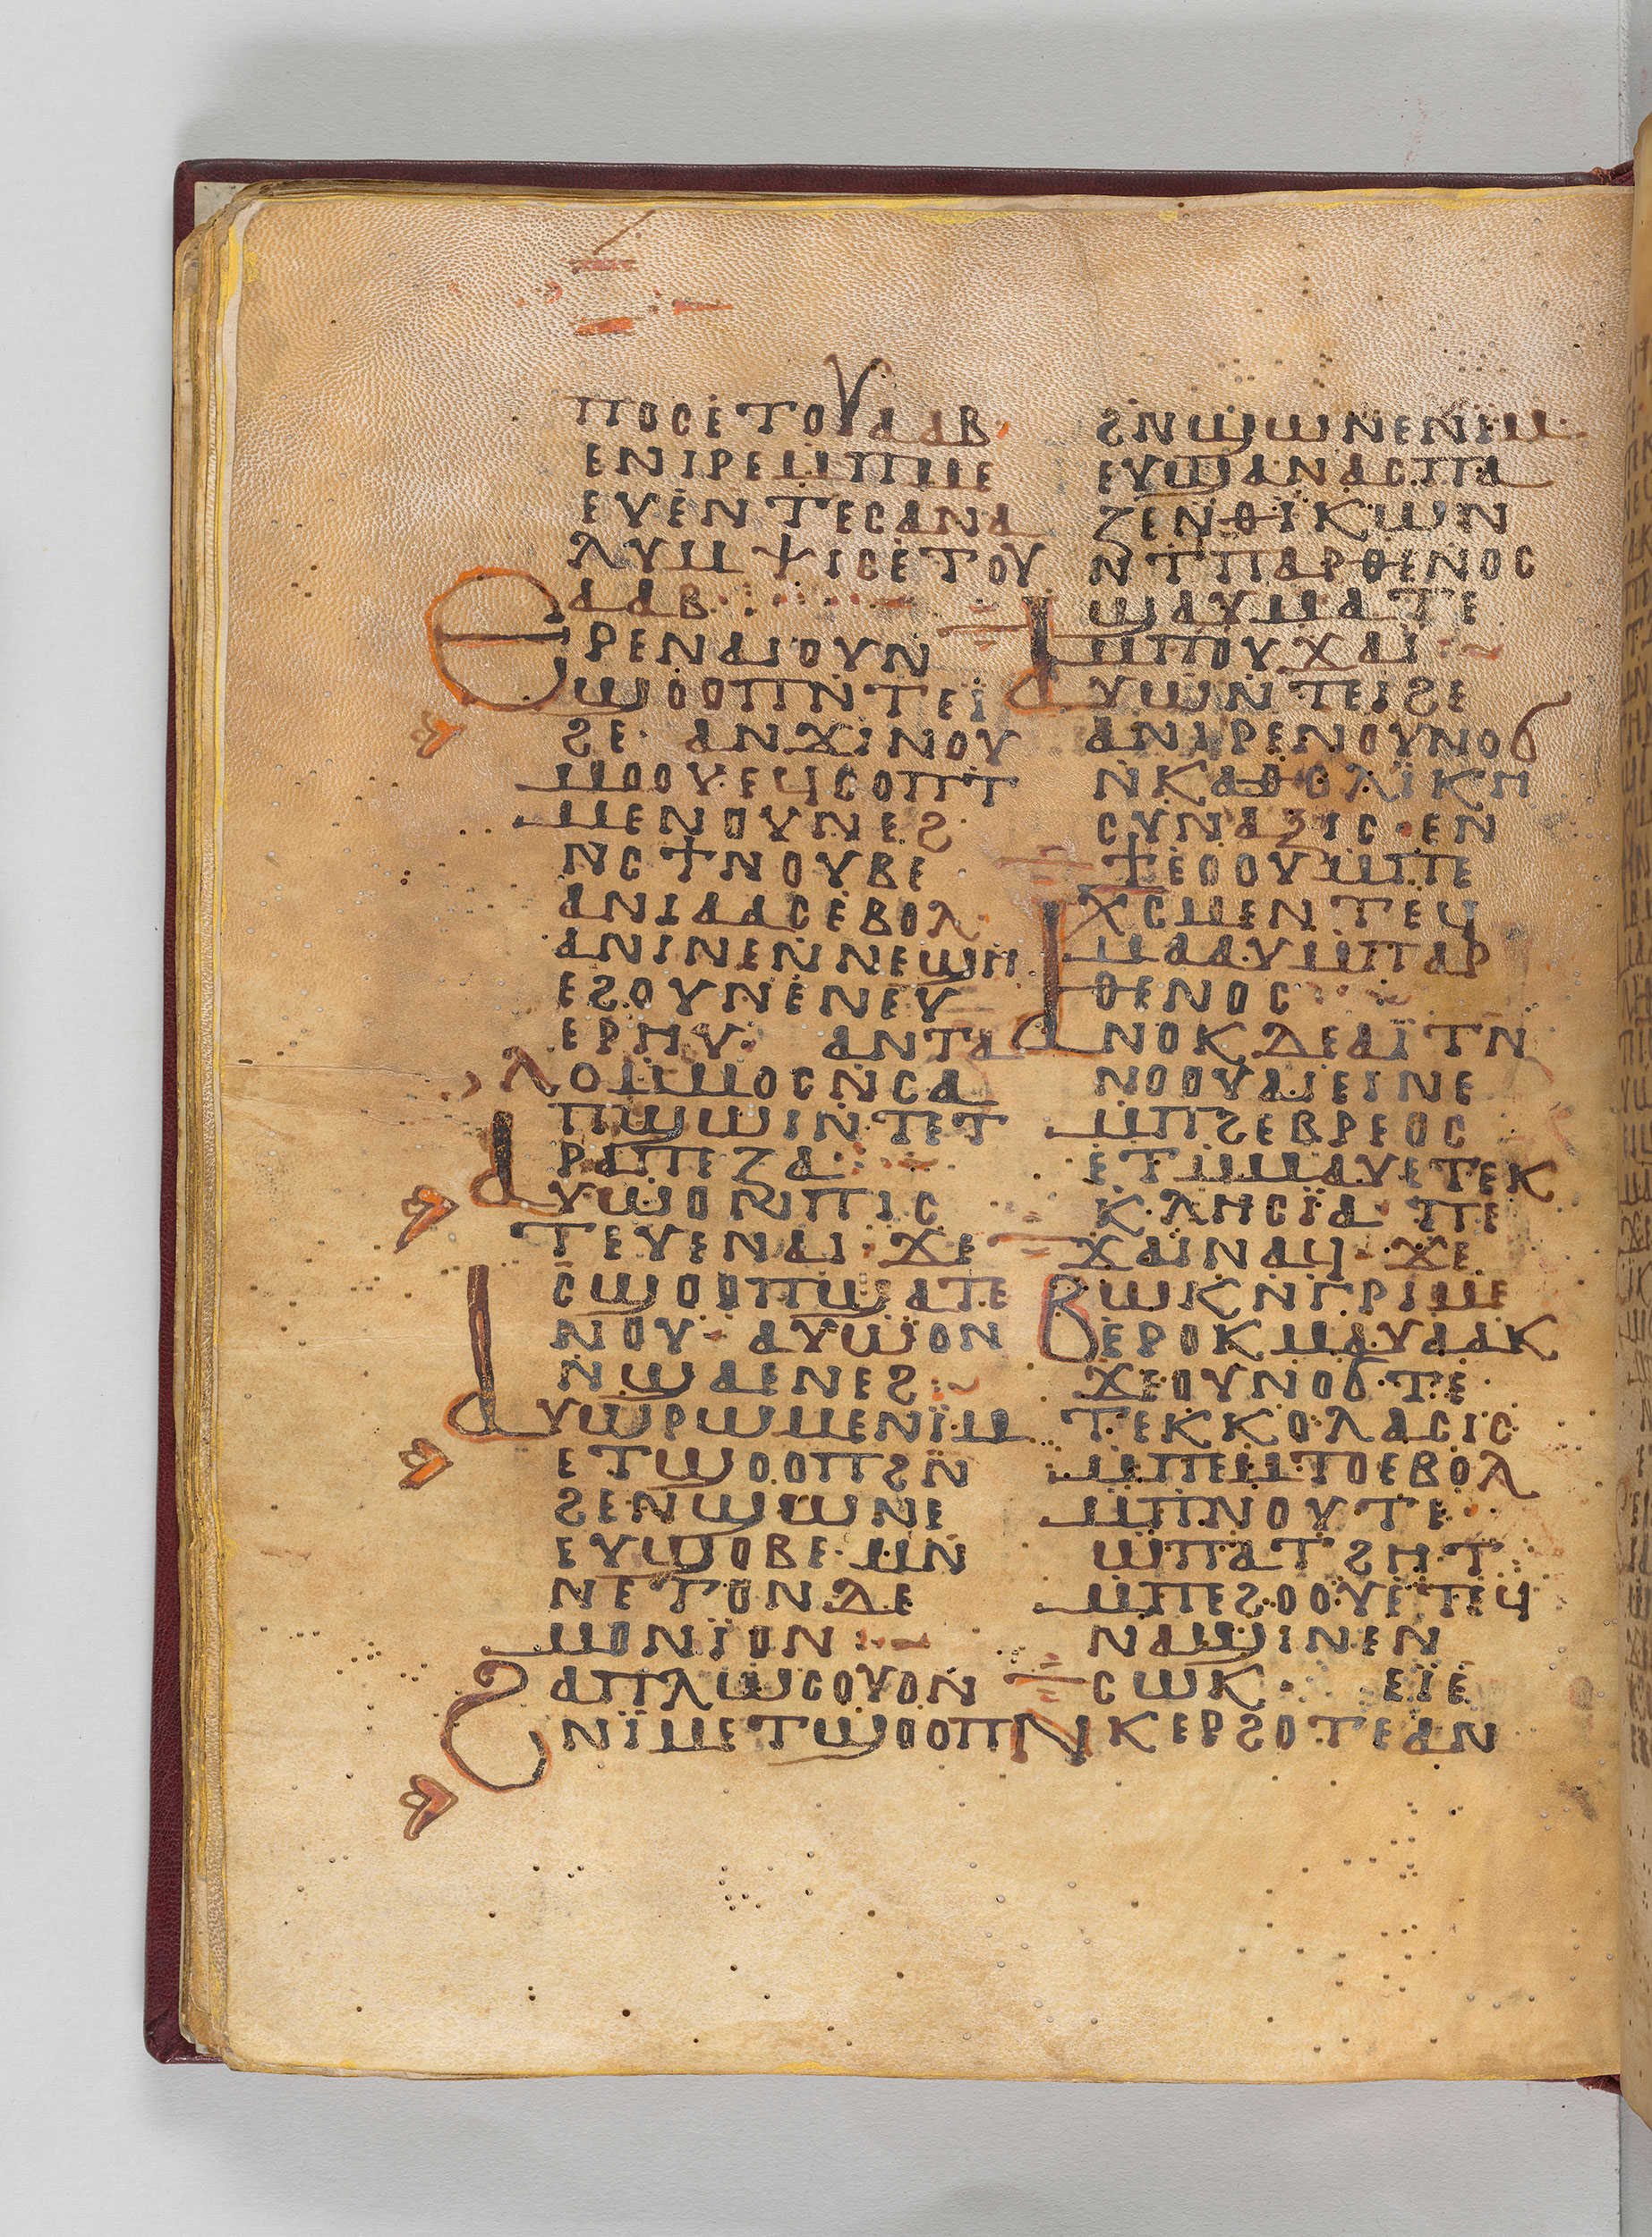 ⲡⲟⲥⲉⲧⲟⲩⲁⲁⲃ·
ⲉⲛⲓⲣⲉⲙⲡⲙⲉ
ⲉⲩⲉⲛⲧⲉⲥⲁⲛⲁ
ⲗⲩⲙⲯⲓⲥⲉⲧⲟⲩ
ⲁⲁⲃ·
ⲉⲣⲉⲛⲁⲓⲟⲩⲛ
ϣⲟⲟⲡⲛⲧⲉⲓ̈
ϩⲉ· ⲁⲛϫⲓⲛⲟⲩ
ⲙⲟⲟⲩⲉϥⲥⲟⲡⲧ
ⲙⲉⲛⲟⲩⲛⲉϩ
ⲛⲥϯⲛⲟⲩⲃⲉ
ⲁⲛⲓⲁⲁⲥⲉⲃⲟⲗ
ⲁⲛⲓⲛⲉⲛⲛⲉϣⲏ
ⲉϩⲟⲩⲛⲉⲛⲉⲩ
ⲉⲣⲏⲩ· ⲁⲛⲧⲁ
ⲗⲟⲙⲙⲟⲥⲛⲥⲁ
ⲡϣⲱⲓⲛⲧⲉⲧ
ⲣⲁⲡⲉⲍⲁ·
ⲁⲩⲱⲟⲛⲡⲓⲥ
ⲧⲉⲩⲉⲛⲁⲓ· ϫⲉ
ⲥϣⲟⲟⲡϣⲁⲧⲉ
ⲛⲟⲩ· ⲁⲩⲱⲟⲛ
ⲛϣⲁⲉⲛⲉϩ·
ⲁⲩⲱⲣⲱⲙⲉⲛⲓ̈ⲙ
ⲉⲧϣⲟⲟⲡϩⲛ
ϩⲉⲛϣⲱⲛⲉ
ⲉⲩϣⲟⲃⲉ·ⲙⲛ
ⲛⲉⲧⲟⲛⲇⲉ
ⲙⲟⲛⲓ̈ⲟⲛ·
ϩⲁⲡⲗⲱⲥⲟⲩⲟⲛ
ⲛⲓ̈ⲙⲉⲧϣⲟⲟⲡ
ϩⲛϣⲱⲛⲉⲛⲓⲙ·
ⲉⲩϣⲁⲛⲁⲥⲡⲁ
ⲍⲉⲛⲑⲓ̈ⲕⲱⲛ
ⲛⲧⲡⲁⲣⲑⲉⲛⲟⲥ
ϣⲁⲩⲙⲁⲧⲉ
ⲙⲡⲟⲩϫⲁⲓ
ⲁⲩⲱⲛⲧⲉⲓϩⲉ
ⲁⲛⲓⲣⲉⲛⲟⲩⲛⲟϭ
ⲛⲕⲁⲑⲟⲗⲓ̈ⲕⲏ
ⲥⲩⲛⲁⲝⲓⲥ·ⲉⲛ
ϯⲉⲟⲟⲩⲙⲡⲉ
ⲭⲥⲙⲉⲛⲧⲉϥ
ⲙⲁⲁⲩⲙⲡⲁⲣ
ⲑⲉⲛⲟⲥ
ⲁⲛⲟⲕⲇⲉⲁⲓ̈ⲧⲛ
ⲛⲟⲟⲩⲁⲓⲉⲓⲛⲉ
ⲙⲡϩⲉⲃⲣⲉⲟⲥ
ⲉⲧⲙⲙⲁⲩⲉⲧⲉⲕ
ⲕⲗⲏⲥⲓ̈ⲁ ⲡⲉ
ϫⲁⲓⲛⲁϥ· ϫⲉ
ⲃⲱⲕⲛⲅⲣⲓⲙⲉ
ⲉⲣⲟⲕⲙⲁⲩⲁⲁⲕ
ϫⲉⲟⲩⲛⲟϭⲧⲉ
ⲧⲉⲕⲕⲟⲗⲁⲥⲓⲥ
ⲙⲡⲉⲙⲧⲟⲉⲃⲟⲗ
ⲙⲡⲛⲟⲩⲧⲉ
ⲱⲡⲁⲧϩⲏⲧ
ⲙⲡⲉϩⲟⲟⲩⲉⲧϥ
ⲛⲁϣⲓⲛⲉⲛ
ⲥⲱⲕ· ⲉⲓ̈ⲉ
ⲛⲕⲉⲣϩⲟⲧⲉⲁⲛ